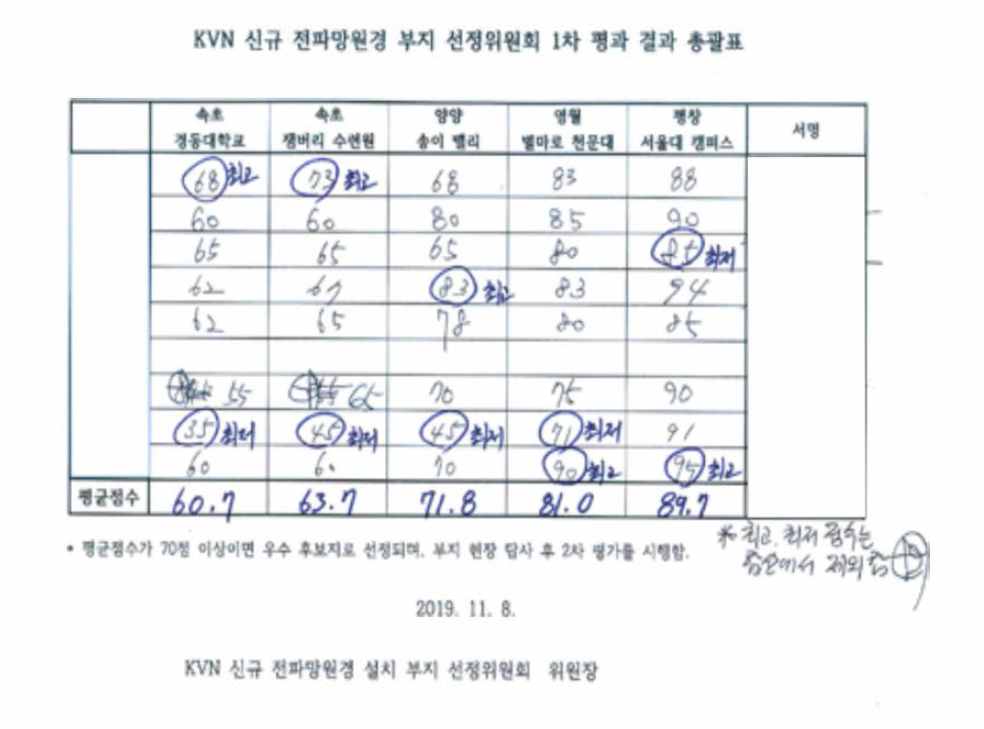 KVN 신규 전파망원경 부지 선정위원회 1차 평과 결과 총괄표
속초 속초 양양 영월 평창
경동대학교 잼버리 수련원 송이 밸리 별마로 천문대 서울대 캠퍼스 서명
68 최고 73 최고 68 83 88
60 60 80 85 90
65 65 65 80 85 최저
62 67 83 최고 83 94
62 65 78 80 85
55 65 70 75 90
35 최저 45 최저 45 최저 71 최저 91
60 60 70 90 최고 95 최고
평균점수 60.7 63.7 71.8 81.0 89.7
* 평균점수가 70점 이상이면 우수 후보지로 선정되며, 부지 현장 답사 후 2차 평가를 시행함.
* 최고, 최저 점수는
평균에서 제외함
2019. 11. 8.
KVN 신규 전파망원경 설치 부지 선정위원회 위원장